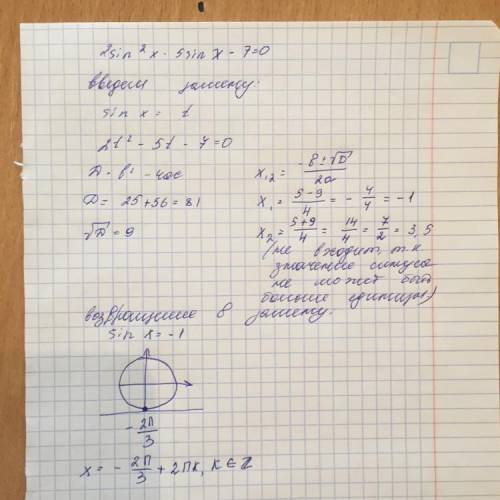 2sin²x - 5sin x - 7=0
введем замену:
sin x = t
2t² - 5t - 7=0
D = b² - 4ac
D = 25+56=81
√D = 9
x₁,₂ = (-b ± √D)/2a
x₁ = (5-9)/4 = - 4/4 = -1
x₂ = (5+9)/4 = 14/4 = 7/2 = 3,5
(не входит, т.к.
значение синуса
не может быть
больше единицы)
возвращение в замену.
sin x = -1
- 2π/3
x = - 2π/3 + 2πk, k ∈ Z